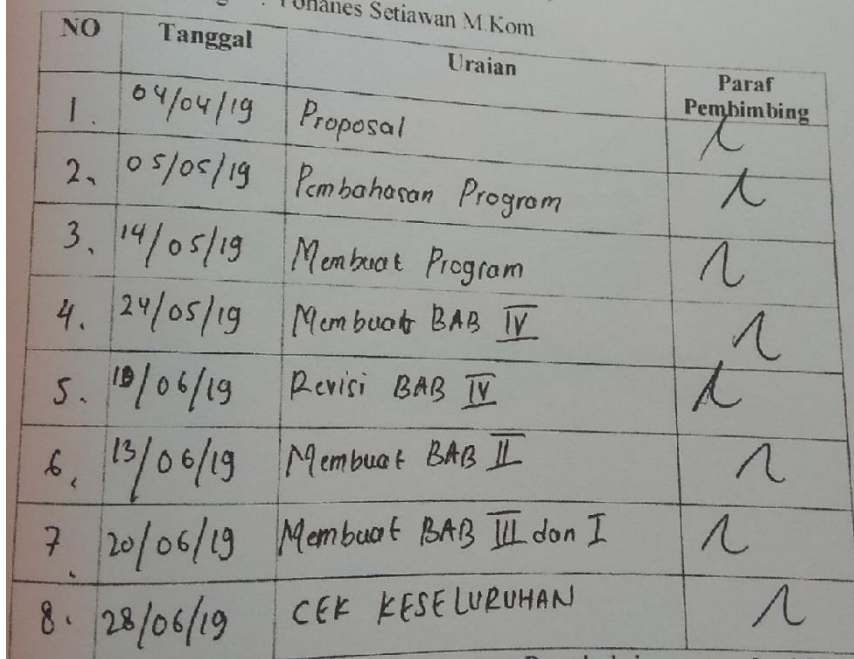 Yohanes Setiawan M.Kom
NO Tanggal Uraian Paraf Pembimbing
1. 04/04/19 Proposal
2. 05/05/19 Pembahasan Program
3. 14/05/19 Membuat Program
4. 24/05/19 Membuat BAB IV
5. /06/19 Revisi BAB IV
6. 13/06/19 Membuat BAB II
7. 20/06/19 Membuat BAB III dan I
8. 28/06/19 CEK KESELURUHAN